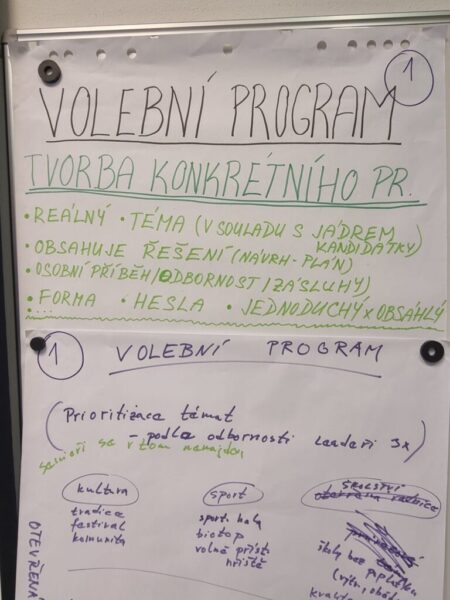 1
VOLEBNÍ PROGRAM
TVORBA KONKRÉTNÍHO PR.
• REÁLNÝ • TÉMA (V SOULADU S JÁDREM
KANDIDÁTKY)
• OBSAHUJE ŘEŠENÍ (NÁVRH-PLÁN)
• OSOBNÍ PŘÍBĚH/ODBORNOST/ZÁSLUHY)
• FORMA • HESLA • JEDNODUCHÝ x OBSÁHLÝ
• ...
1 VOLEBNÍ PROGRAM
(Prioritizace témat
- podle odbornosti leadeři 3x)
senioři se v tom nenajdou
kultura
tradice
festival
komunita
sport
sport. hala
biotop
volně příst.
hřiště
ŠKOLSTVÍ
otevřená radnice
školy bez poplatku
OTEVŘENÁ